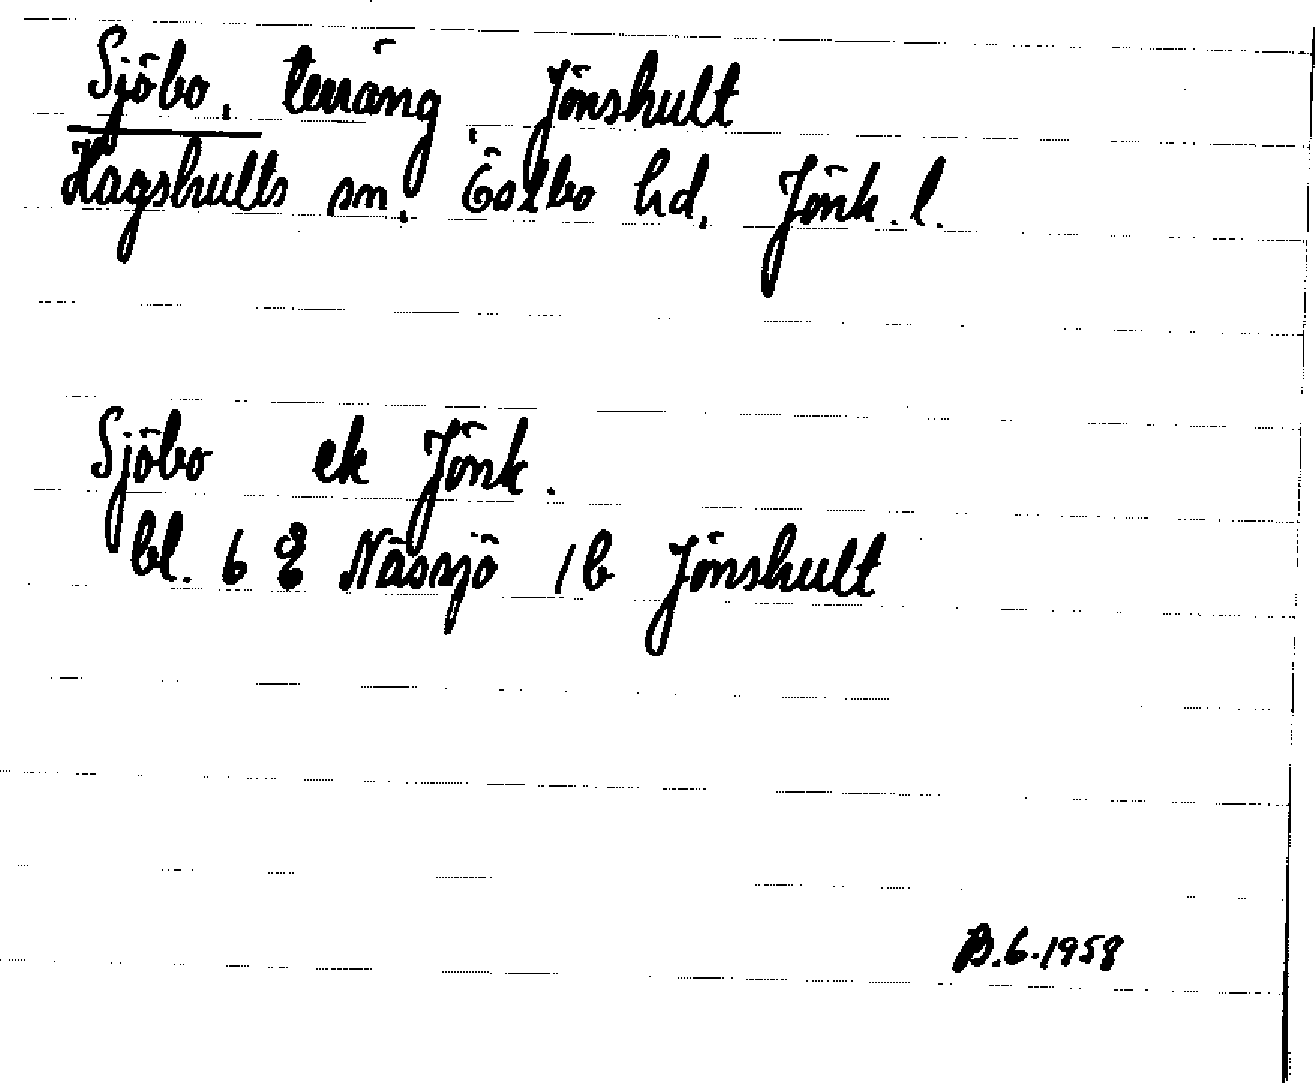 Sjöbo, terräng, Jönshult
Hagshults sn. Östbo hd. Jönk. l.
Sjöbo ek Jönk.
bl. 6 E Nässjö 1 b Jönshult
B.G.1958